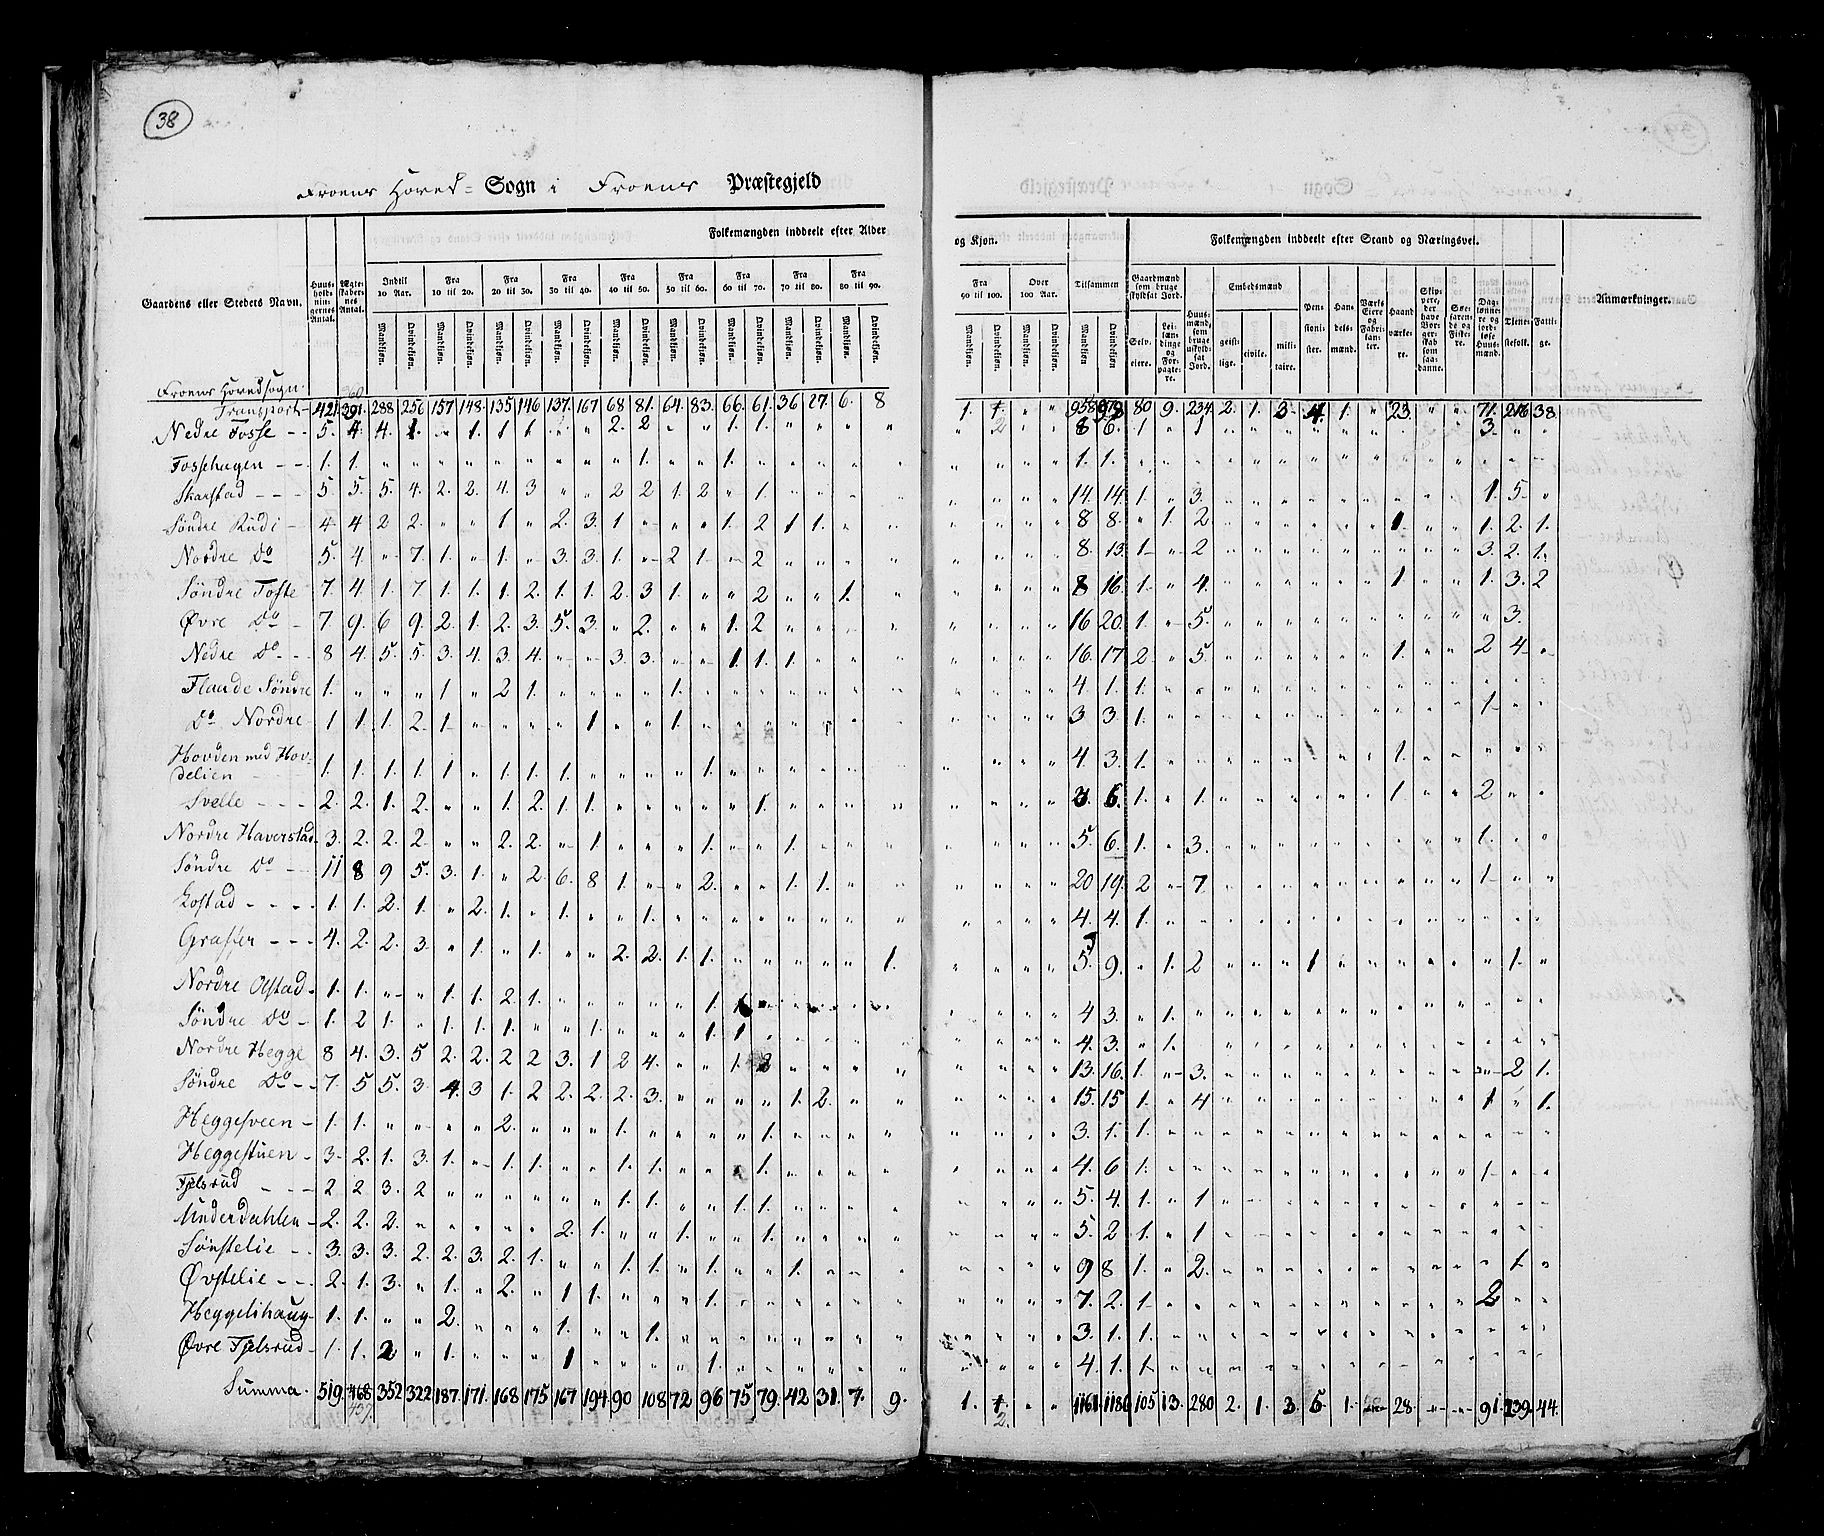 38
Froens Hoved= Sogn i Froens Præstegjeld
Gaardens eller Steders Navn. Huusholdningernes Antal. Ægteskabernes Antal. Folkemængden inddeelt efter Alder og Kjøn. Tilsammen Folkemængden inddeelt efter Stand og Næringsvei. Anmærkninger.
Indtil 10 Aar. Fra 10 til 20. Fra 20 til 30. Fra 30 til 40. Fra 40 til 50. Fra 50 til 60. Fra 60 til 70. Fra 70 til 80. Fra 80 til 90. Fra 90 til 100. Over 100 Aar.
Gaardmænd som bruge skyldsat Jord. Huusmænd, som bruge uskyldsat Jord. Embedsmænd Pensionister. Handelsmænd. Værks Eiere og Fabrikanter. Haandværkere. Skippere, der have Borgerskab som saadanne. Søefarende og Fiskere. Daglønnere og jordløse Huusmænd. Tjenestefolk. Fattige.
Mandkjøn. Qvindekjøn. Selveiere. Leilændinge og Forpagtere. geistlige. civile. militaire.
Froens Hovedsogn.
360
Transport 421. 391. 288 256 157 148. 135 146 137. 167 68 81. 64. 83. 66. 61. 36 27. 6. 8 1. 1. 958 80 9. 234. 2. 1. 3. 4. 1. 23. 71. 216 38
Nedre Fosse 5. 4. 4. 1. " 1. 1. 1. 2. 2 1. 1. 2 8 6. 1 " 1 3.
Fossehagen 1. 1. 1. 1. 1. 1.
Skarstad 5. 5. 5. 4. 2. 2. 4. 3 " " 2 2 1. 2 " 1. 14. 14. 1. " 3. 1. 5.
Søndre Rudi 4. 4 2 2. " " 1 " 2. 3. 1 1. 2 1 1. 8 8. " 1. 2. 1. 1. 2. 1.
Nordre Do 5. 4. " 7. 1. " 1. " 3. 3. 1. " 2 1. " 2 8. 13. 1. " 2 3. 2. 1.
Søndre Tofte 7. 4. 1. 7. 1. 1. 1. 2. 1. 1. 2. 3 1. " " 2 " " 1. 8 16. 1. " 4. 1. 1. 3. 2
Øvre Do 7 9. 6 9. 2. 1. 2. 3. 5. 3. " 2. " " 1. 2 16 20. 1. " 5. 3.
Nedre Do 8 4. 5. 5. 3. 4. 3. 4. " " 3. 3. " " 1. 1. 1. 16. 17 2. " 5. 1. 2 4.
Flaade Søndre 1. " " " 1 " 2 1. 1. 4. 1. 1.
Do Nordre 1 1. 1. 2 1. 1 1. 3 3. 1. 1.
Hovden med Hovdelien 1. 1. 1. 1. 1. " 1. 1. 1. 1. 4 3. 1. 1.
Svelle 2. 2. 1. 2. " " 1. 2. 1. 1. 1. 3. 6. 1. " 1. 1. 2
Nordre Haverstad 3. 2. 2. 2 " " 2. 2. " 1 1. 1. 5. 6. 1. " 3. 1.
Søndre Do 11 8 9 5. 3. 1. " 2. 6. 8 1. " " 2. " " 1. 1. 20 19. 2 " 7. 1.
Lostad 1. 1. 2. 1. " 2. 1. " 1. " " 1. 4. 4. 1.
Graffer 4. 2. 2. 3. " 1. " 1. " " 2. 2. 1. 1. 1. 5. 9. " 1. 2 1 1.
Nordre Olstad 1. 1. " " 1. 1. 2. 1. 1. 4 3. " 1.
Søndre Do 1. 2 1. " 1. 1. 1. " " 1. 1. 1. 4. 3. " 1.
Nordre Hegge 8 4. 3. 5 2. 2. 2 2 3. 1 2 4. " " 1. 2 13. 16. 1. " 3. 2 1.
Søndre Do 7. 5 5. 3. 4. 3 1. 2 2. 2. 2. 3. 1. 2. 15. 15 1. " 4 1 " 1.
Heggesveen 1. 1. 2. 1. 1. 3. 1. 1.
Heggestuen 3. 2. 1. 3. 1. " 1. 1. 1. 1. 1. 4. 6 1. 1.
Fjelsrud 2 2 3. 2 1. 1. 1. 1. 5. 4. 1. " 1
Underdahlen 2. 2. 2. 2. 1. 1. 1. 5. 2 1. " 1
Sønstelie 3. 3. 3. 2. 2. 3. 2. 1. 1. 1. 1. 1. 9 8 1. " 2. 1.
Øvstelie 2. 1. 3. " 1. " 2. " 1 1. 1. 7. 2. 1. 2
Heggelihaug 1. 1. " " 2. 1. 1. 3. 1. 1.
Øvre Fjelsrud 1. 1. 2 " 1. 1 1. 4. 1. 1.
Summa 519. 468 352 322 187. 171. 168 175 167 194. 90 108 72 96 75 79. 42 31. 7. 9. 1. 1. " " 1161. 1186 105 13. 280 2. 1. 3. 5. 1. 28. 91. 239. 44.
437. 2